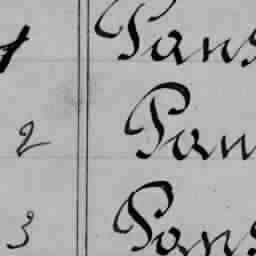 1 Pans
2 Pan
3 Pans